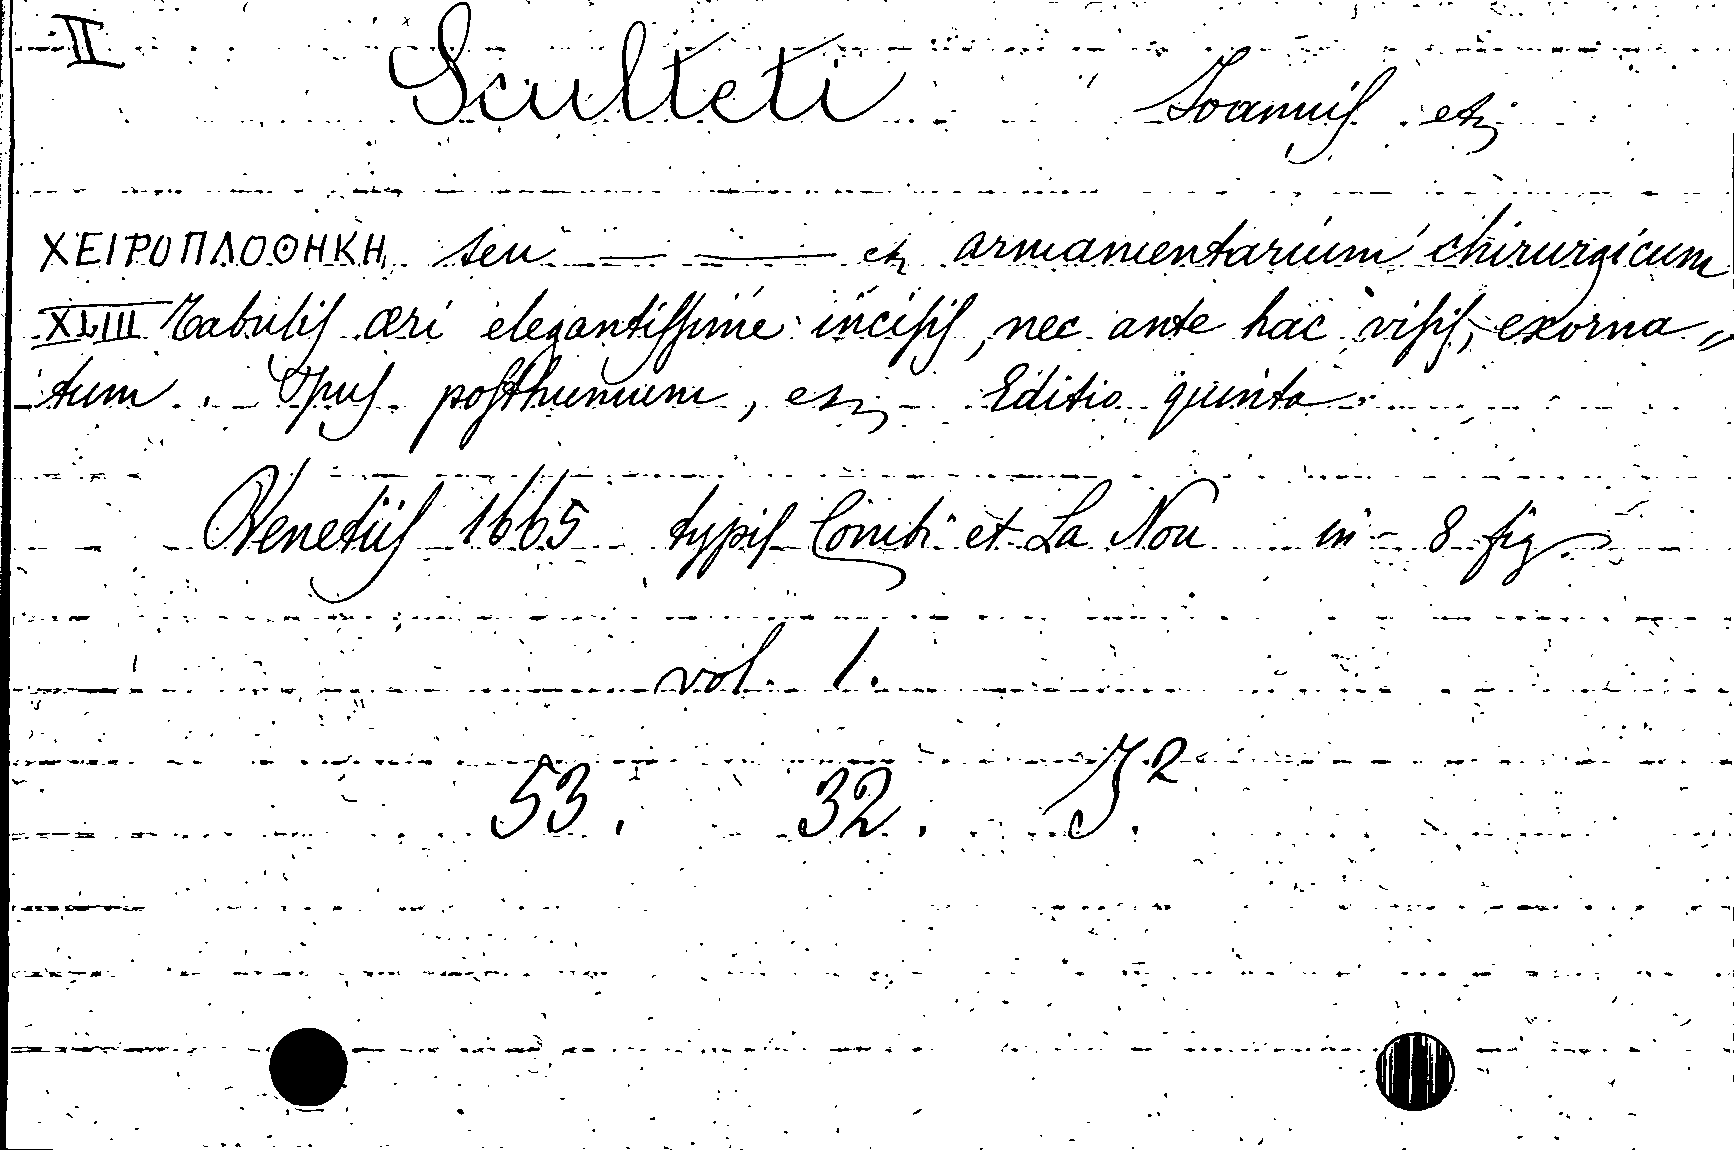 II Sculteti Joannis etz
ΧΕΙΡΟΠΛΟΘΗΚΗ seu — — etz armamentarium chirurgicum
XLIII Tabulis æri elegantissime incisis, nec ante hac visis, exorna„
tum. Opus posthumum, etz Editio quinta
Venetiis 1665 typis Combi et La Nou in - 8 fig.
vol. 1.
53. 32. J².